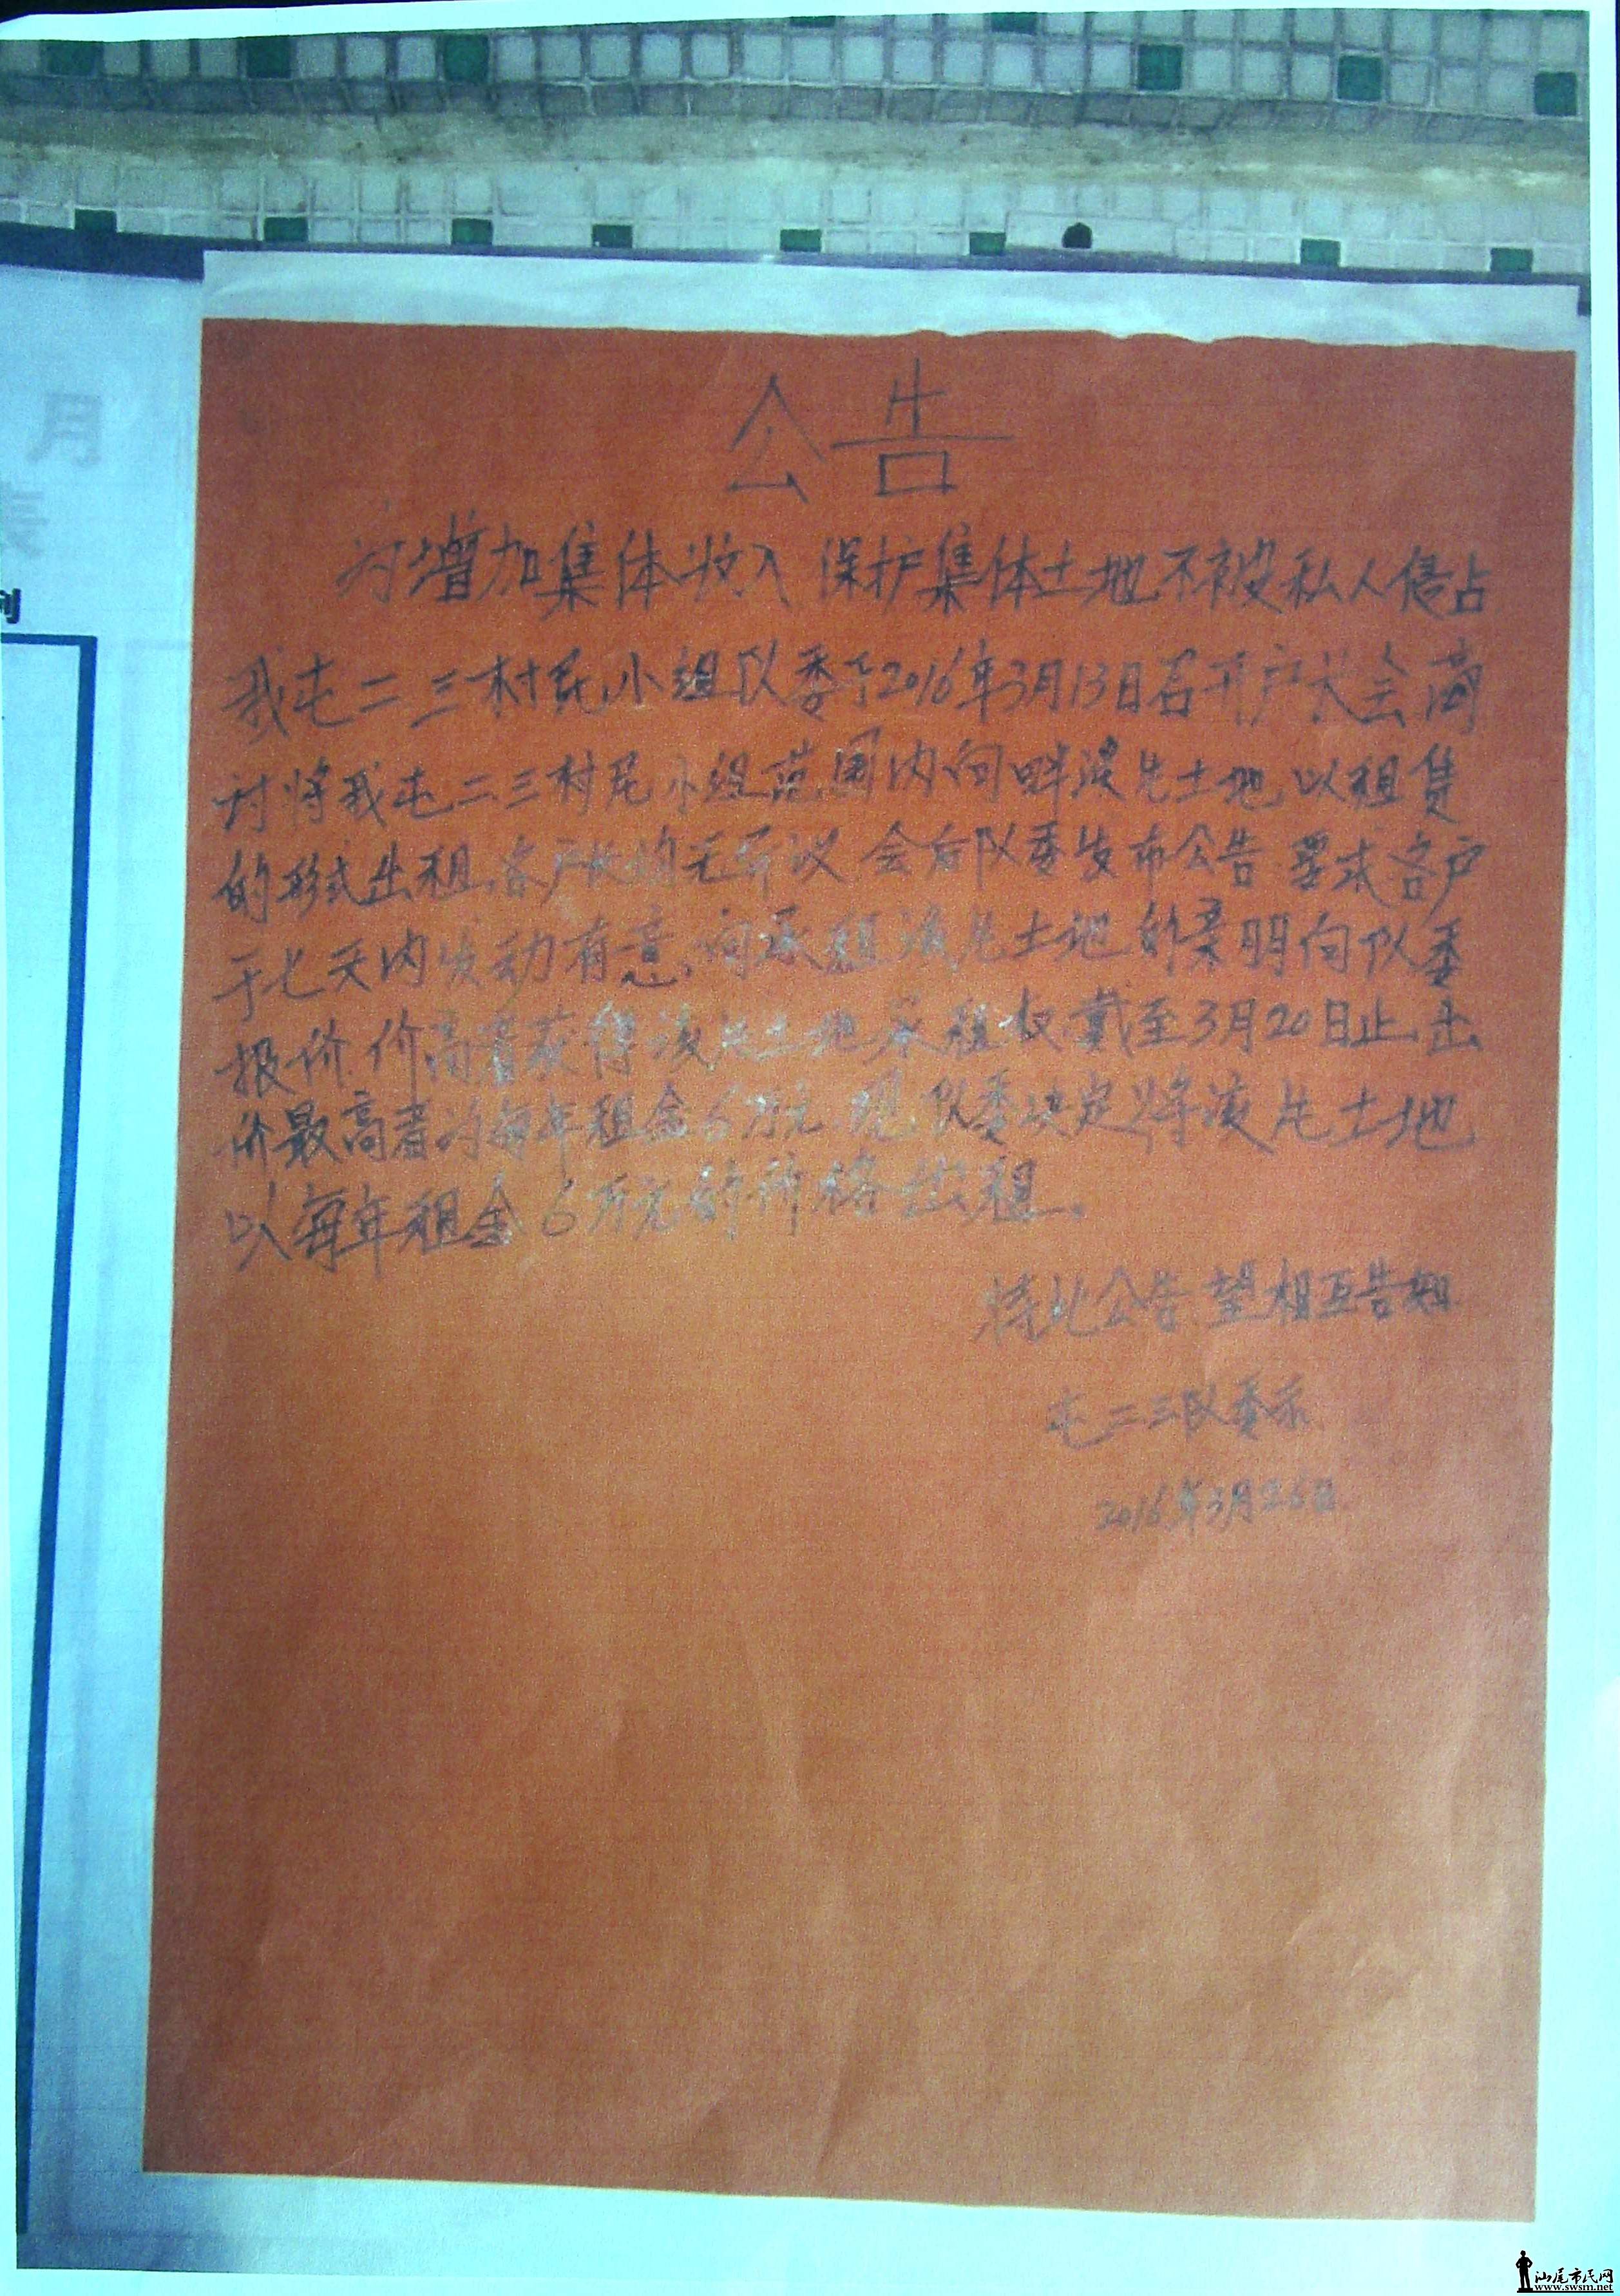 月
表
列
公告
为增加集体收入 保护集体土地不被私人侵占
我屯二三村民小组队委于2016年3月13日召开户长会商
讨将我屯二三村民小组范围内向畔湨片土地 以租赁
的形式出租,各户长均无异议 会后队委发布公告 要求各户
于七天内发动有意向承租该片土地的亲朋向队委
报价,价高者获得该片土地承租权,截至3月20日止,出
价最高者为每年租金6万元,现,队委决定将该片土地
以每年租金6万元的价格出租。
特此公告,望相互告知
屯二三队委示
2016年3月26日
汕尾市民网
www.swsm.net